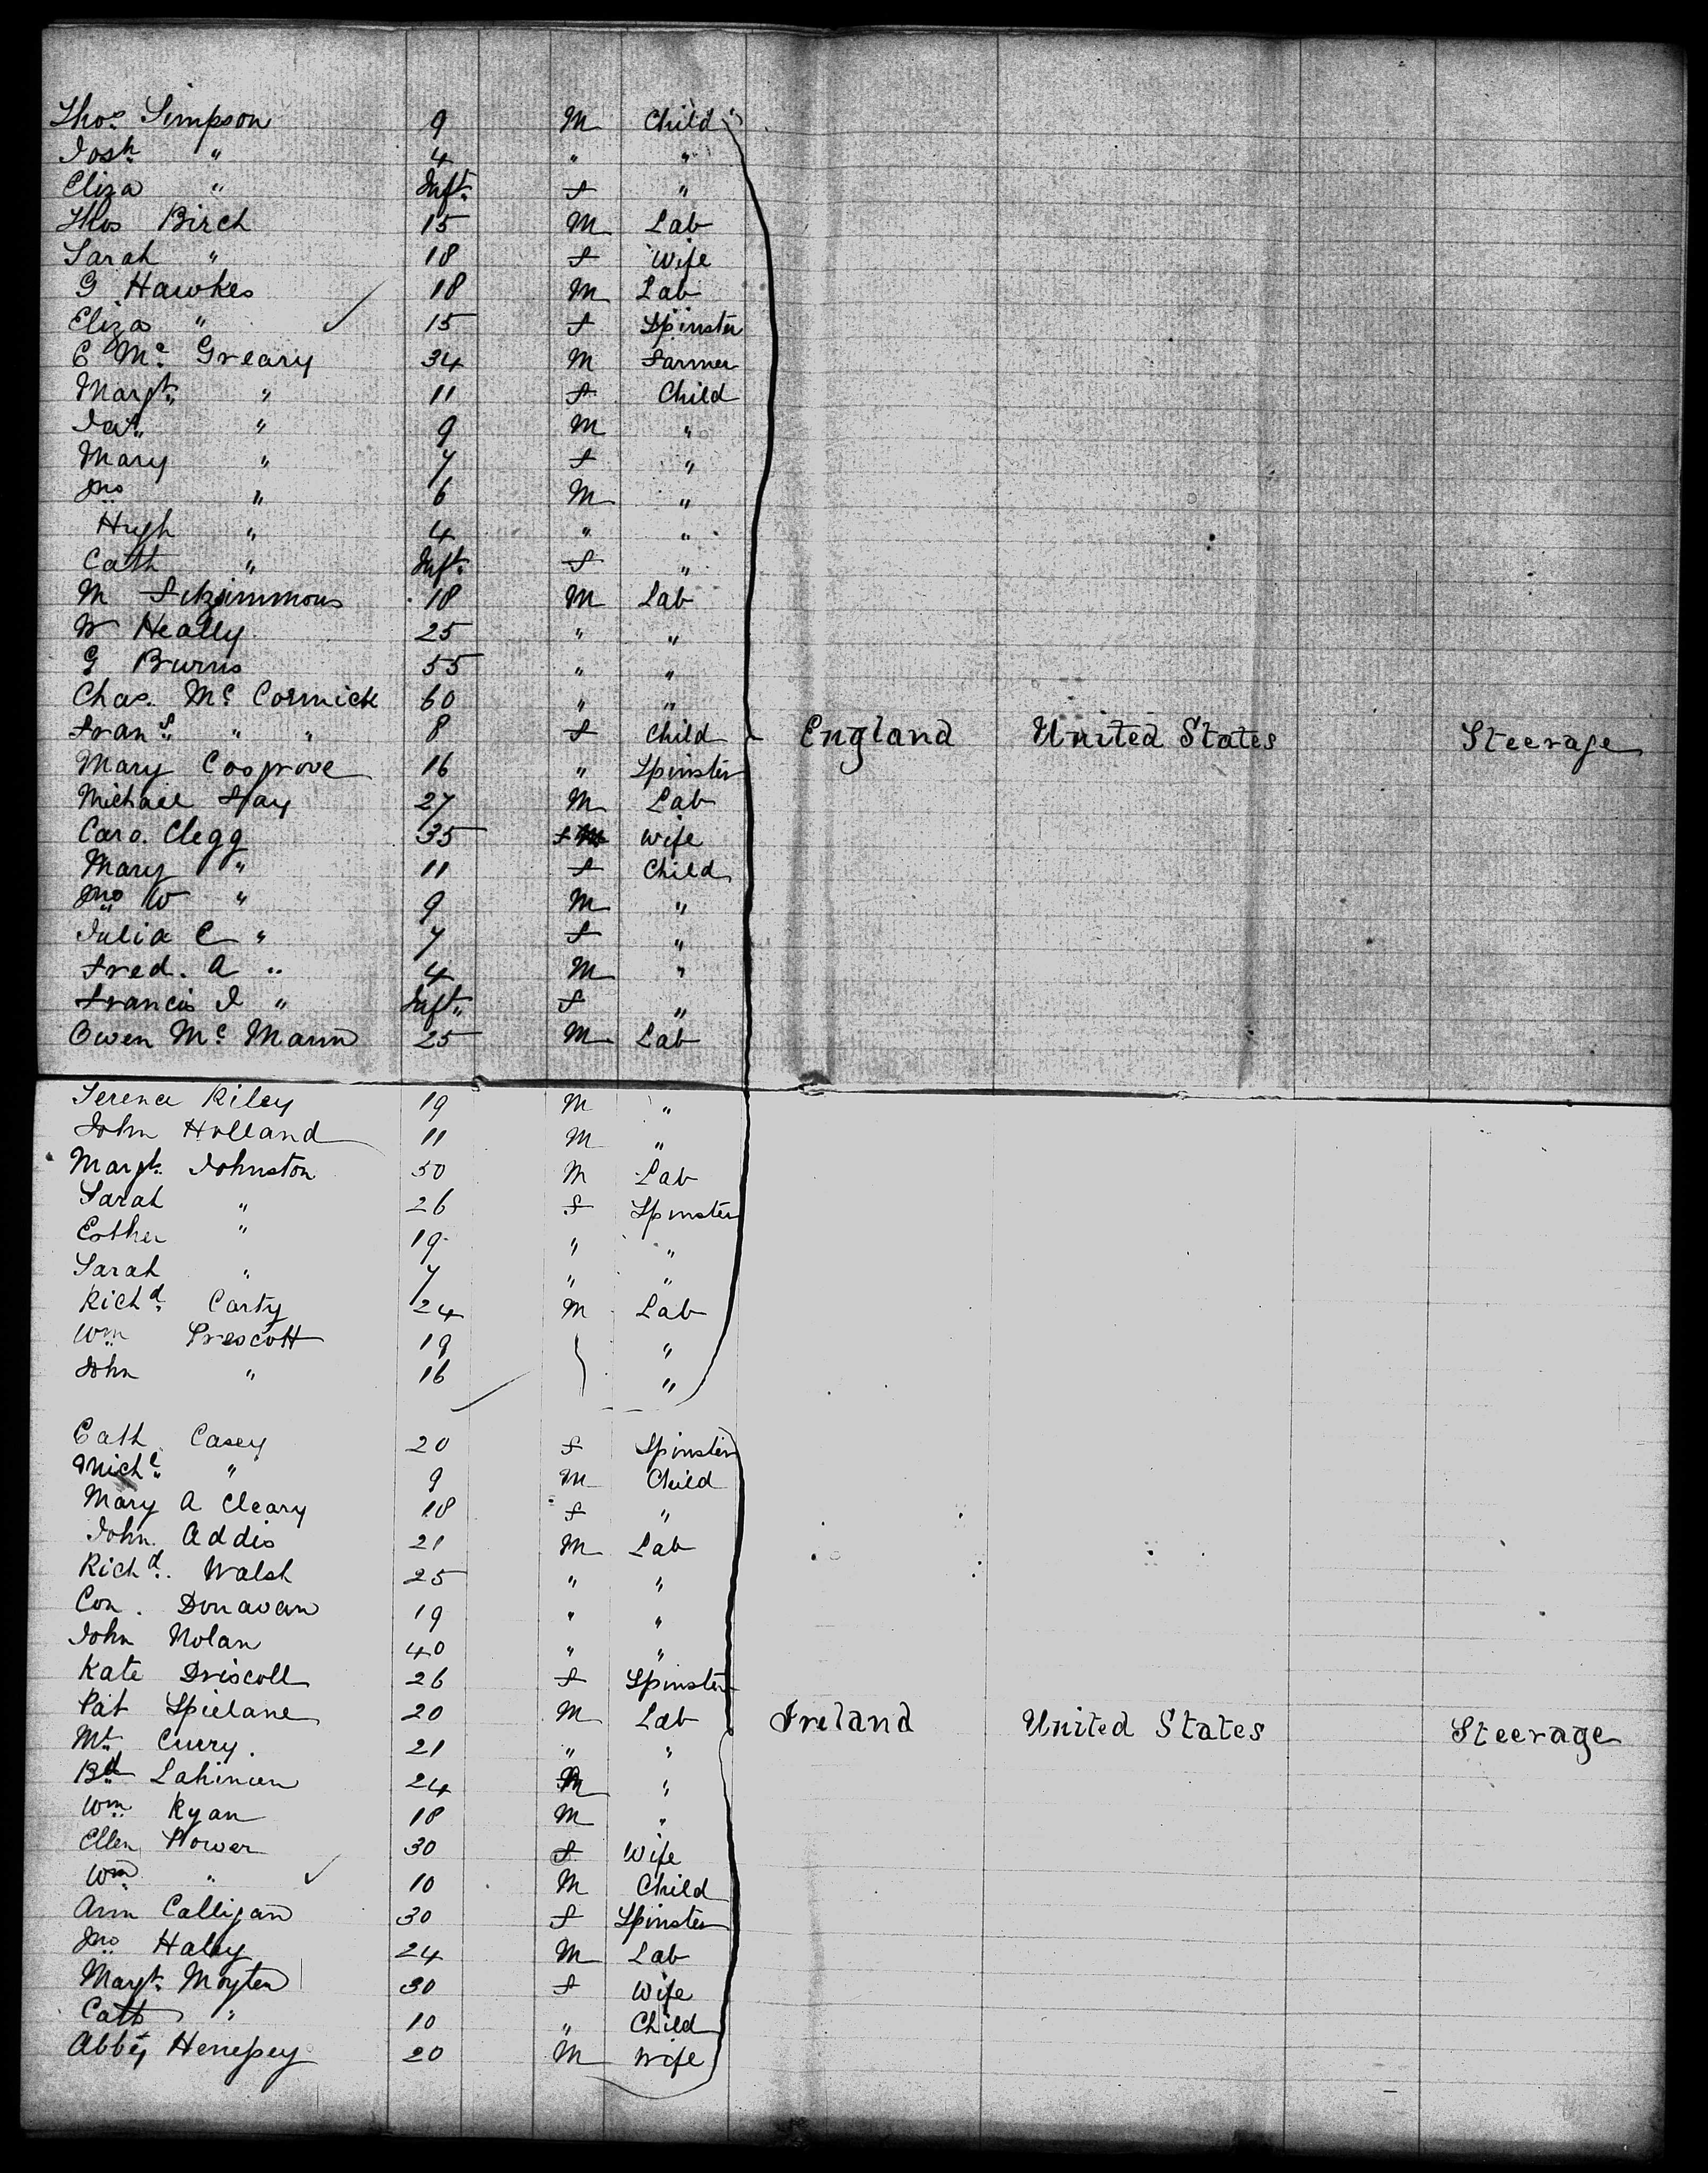 Thos. Simpson 9 M Child
Josh " 4 " "
Eliza " Inft. f "
Thos Birch 15 M Lab
Sarah " 18 f Wife
G Hawkes 18 M Lab
Eliza " 15 f Spinster
C Mc Greary 34 M Farmer
Margt. " 11 f Child
Jas. " 9 M "
Mary " 7 f "
Jno " 6 M "
Hugh " 4 " "
Cath " Inft. f "
M Fitzsimmons 18 M Lab
W Heally 25 " "
G Burns 55 " "
Chas. Mc Cormick 60 " "
Frans. " " 8 f Child England United States Steerage
Mary Cosgrove 16 " Spinster
Michael Hay 27 M Lab
Caro. Clegg 35 f Wife
Mary " 11 f Child
Jno W " 9 M "
Julia C " 7 f "
Fred. A " 4 M "
Francis J " Inft. f "
Owen Mc Mann 25 M Lab
Terence Riley 19 M "
John Holland 11 M "
Margt. Johnston 50 M Lab
Sarah " 26 f Spinster
Esther " 19 " "
Sarah " 7 " "
Richd. Carty 24 M Lab
Wm Prescott 19 "
John " 16 "
Cath Casey 20 f Spinster
Michl. " 9 M Child
Mary A Cleary 18 f "
John Addis 21 M Lab
Richd. Walsh 25 " "
Con. Donavan 19 " "
John Nolan 40 " "
Kate Driscoll 26 f Spinster
Pat Spielane 20 M Lab Ireland United States Steerage
Mt. Curry. 21 " "
Bd Lahinen 24 M "
Wm Ryan 18 M "
Ellen Power 30 f Wife
Wm " 10 M Child
Ann Calligan 30 f Spinster
Jno Haley 24 M Lab
Margt. Moyten 30 f Wife
Cath " 10 " Child
Abbey Henepey 20 M Wife